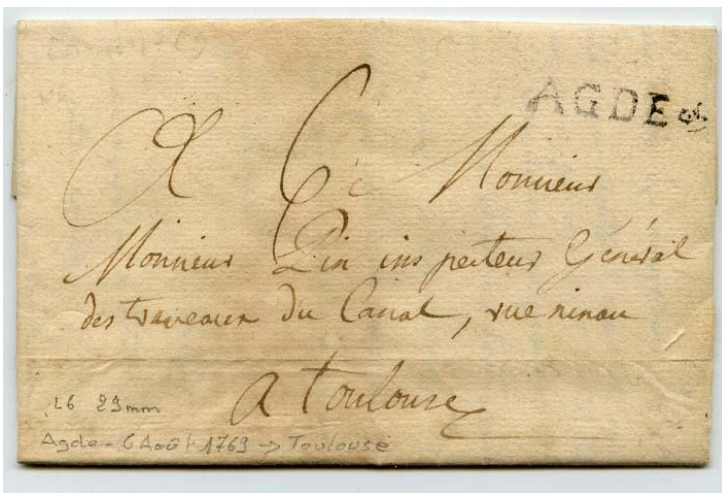 AGDE
A Monsieur
Monsieur Pin inspecteur Général
des travaux du Canal, rue ninau
a Toulouse
L6 29mm
Agde - 6 Août 1769 → Toulouse